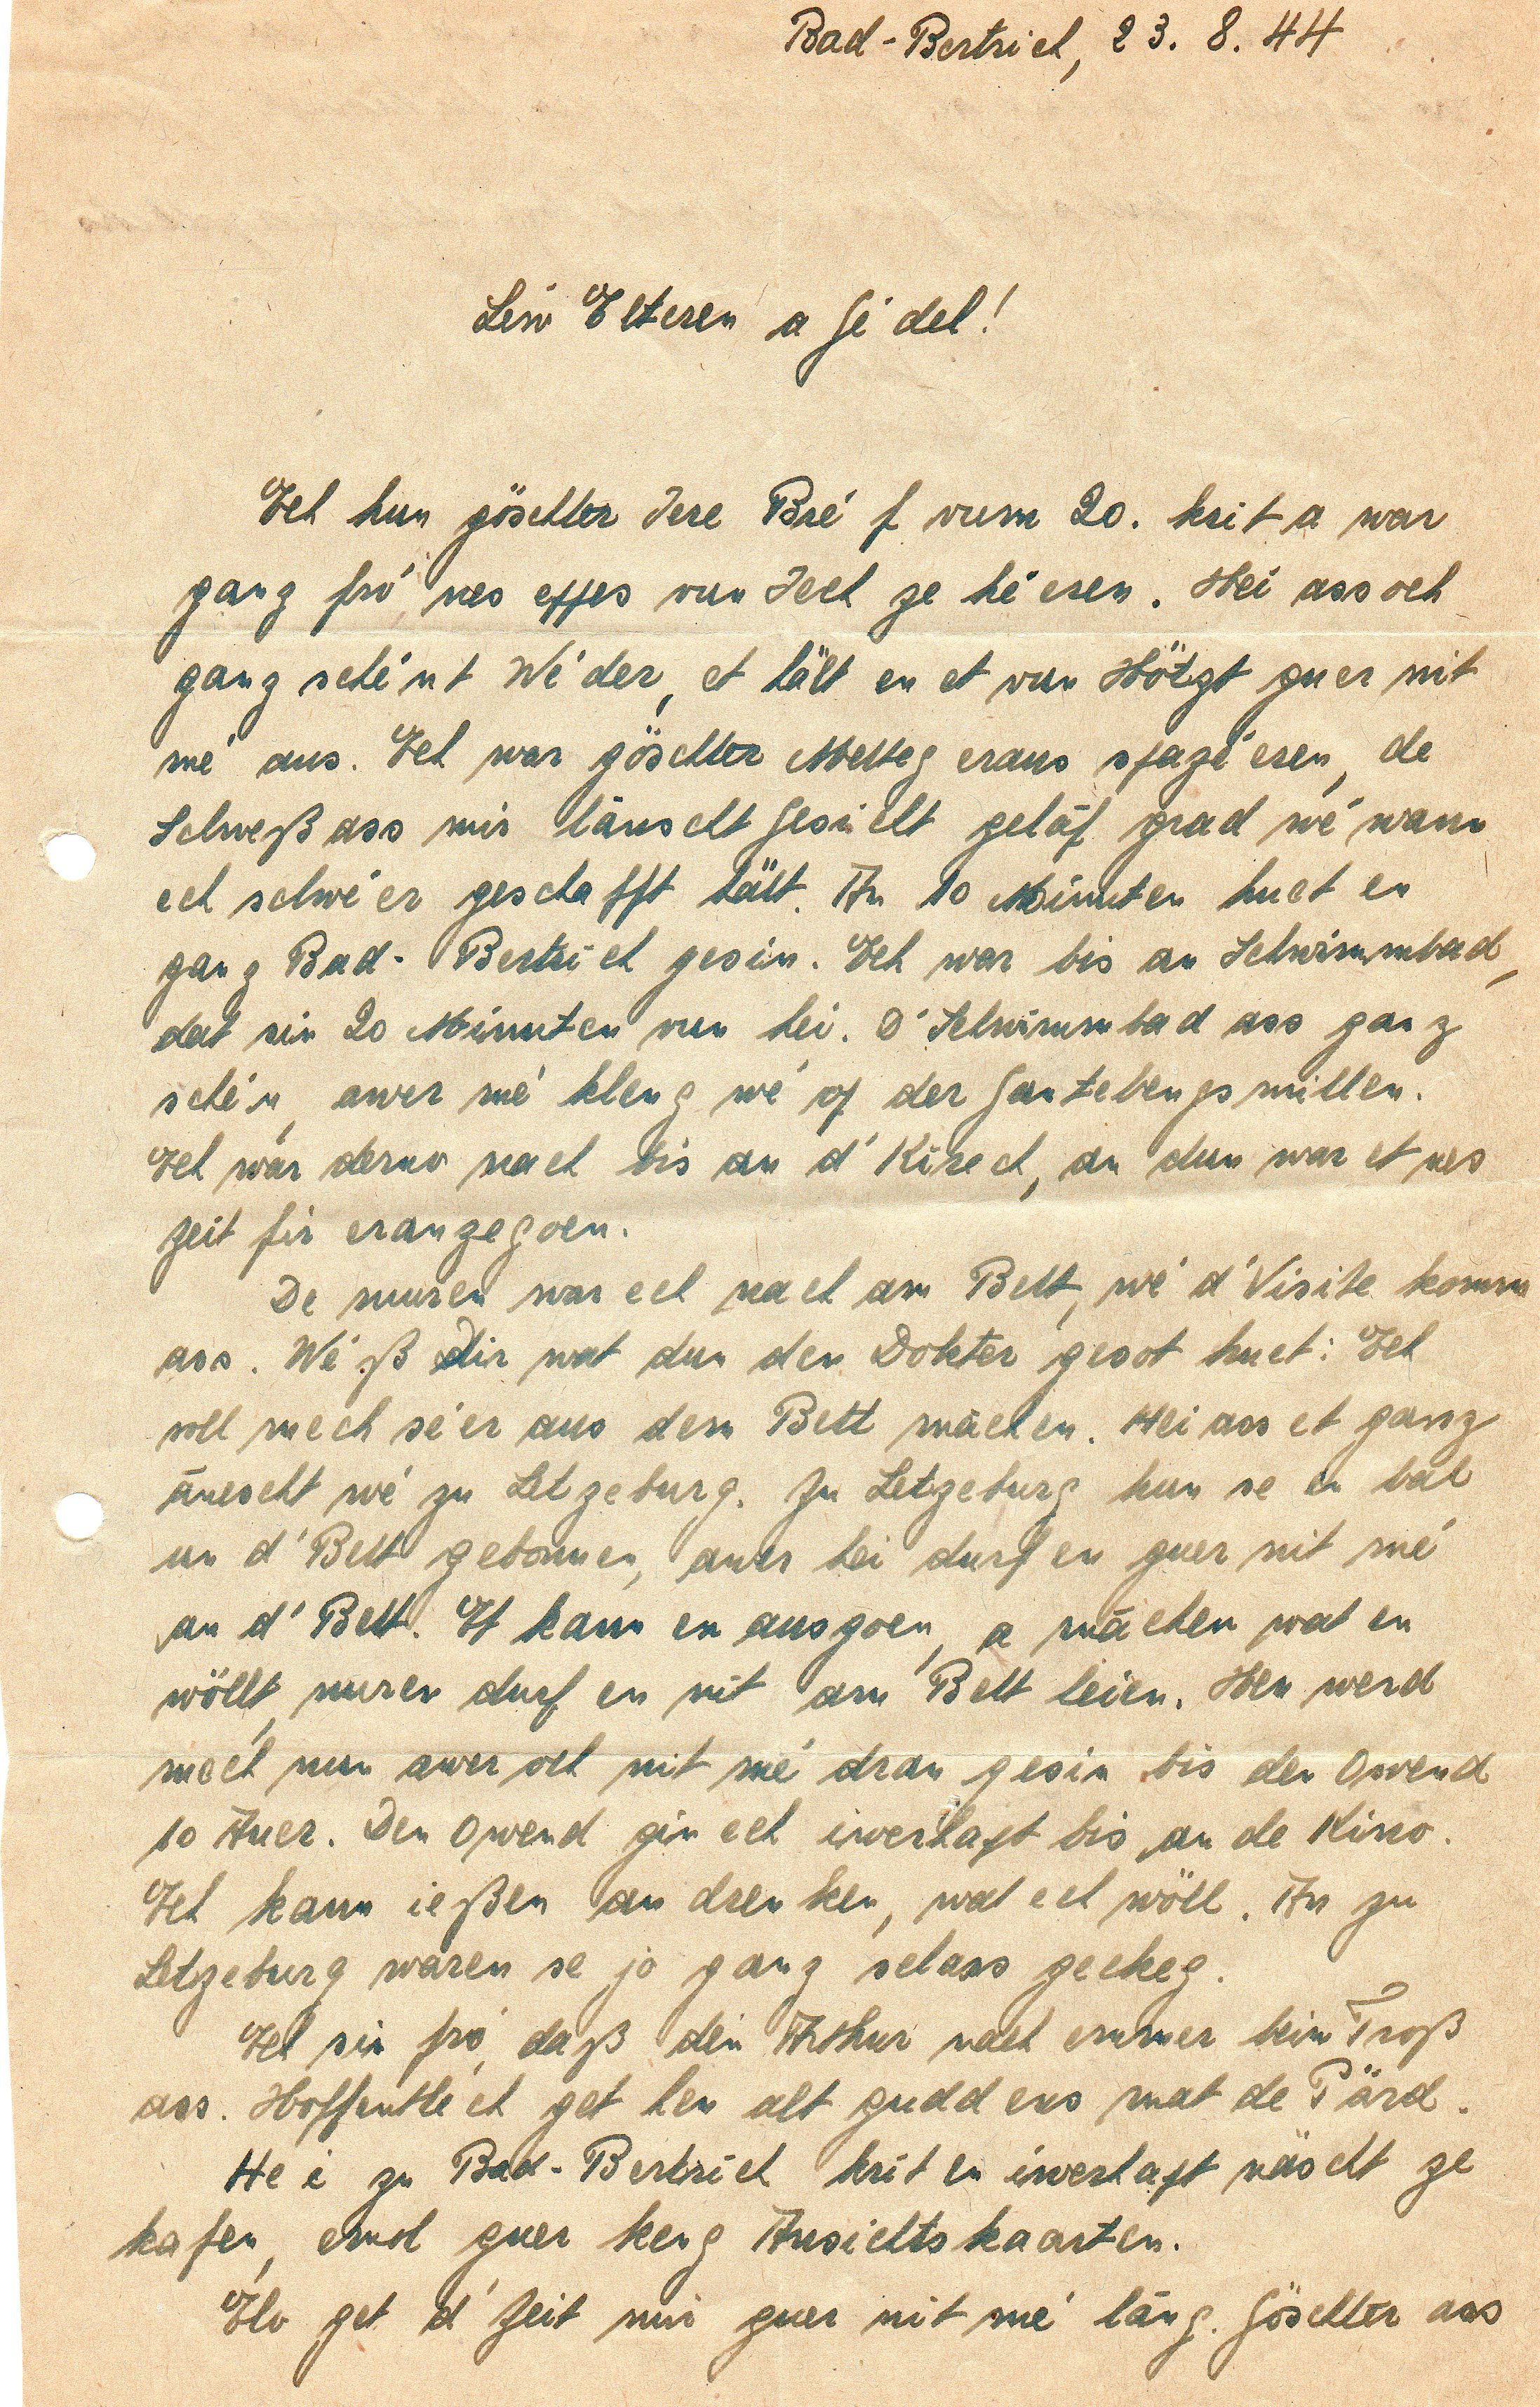 Bad-Bertrich, 23. 8. 44
Léiw Elteren a Gé del!
Ech hun göschter Iere Bré f vum 20. krit a war
ganz fró nes eppes vun Iech ze hé eren. Hei ass och
ganz schéint Wé der, et hält en et vun Hötzt guer nit
mé aus. Ech war göschter Metteg eraus spazé eren, de
Schweß ass mir länscht Gesiicht gelâf grad wé wann
ech schwé er geschafft hätt. An 10 Minuten huet en
ganz Bad-Bertrich gesin. Ech war bis an Schwimmbad,
dat sin 20 Minuten vun hei. D'Schwimmbad ass ganz
schéin, awer mé kleng wé op der Gantebengsmillen.
Ech war derno nach bis an d'Kirech, an dun war et nes
Zeit fir eranzegoen.
De muren war ech nach am Bett, wé d'Visite komm
ass. Wé ß dir wat dun den Dokter gesot huet: Ech
soll mech sé er aus dem Bett mâchen. Hei ass et ganz
ânescht wé zu Letzeburg. Zu Letzeburg hun se en bal
un d'Bett gebonnen, awer hei durf en guer nit mé
an d'Bett. Et kann en ausgoen, a mâchen wat en
wöllt, nuren durf en nit am Bett leien. Hen werd
mech nun awer och nit mé dran gesin bis den Owend
10 Auer. Den Owend gin ech iwerhapt bis an de Kino.
Ech kann ießen an drenken, wat ech wöll. An zu
Letzeburg waren se jo ganz schaus geckeg.
Ech sin fró, daß den Arthur nach emmer beim Troß
ass. Hoffentléch get hen alt gudd eens mat de Pärd.
Hei zu Bad-Bertrich krit en iwerhapt näscht ze
kafen, emol guer keng Ansichtskaarten.
Elo get d'Zeit mir guer nit mé lâng. Göschter ass